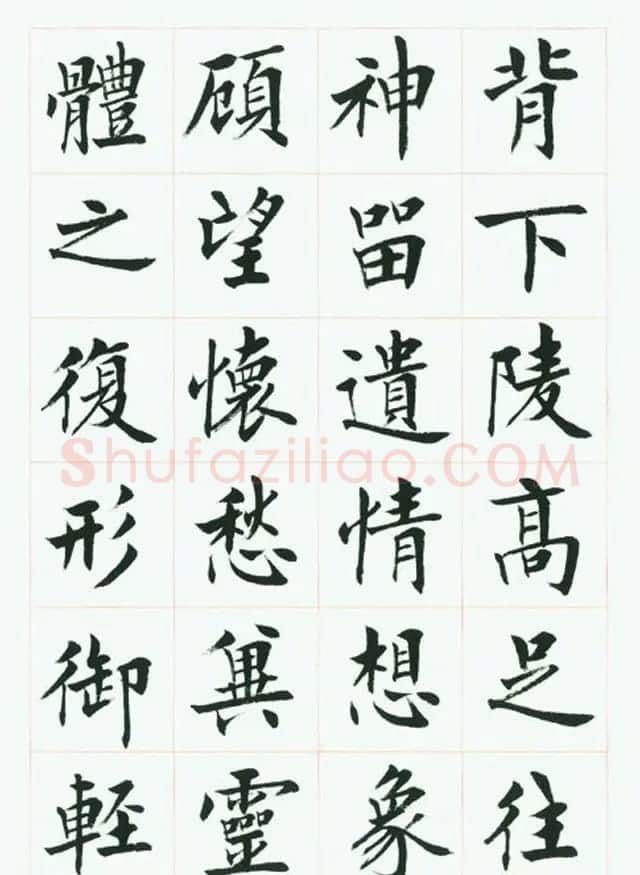 背下陵髙足往
神留遺情想象
顧望懷愁兾靈
體之復形御軽
Shufaziliao.COM